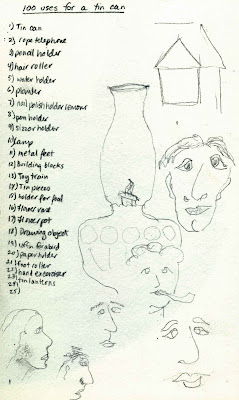 100 uses for a tin can
1) Tin can
2) rope telephone
3) pencil holder
4) hair roller
5) water holder
6) planter
7) nail polish holder
8) pen holder
9) sizzor holder
10) lamp
11) metal feet
12) building blocks
13) Toy train
14) Tin pieces
15) holder for food
16) flower vase
17) flowerpot
18) Drawing object
19) coffin for a bird
20) paper holder
21) foot roller
22) hand exerciser
23)
24) tin lanterns
25)